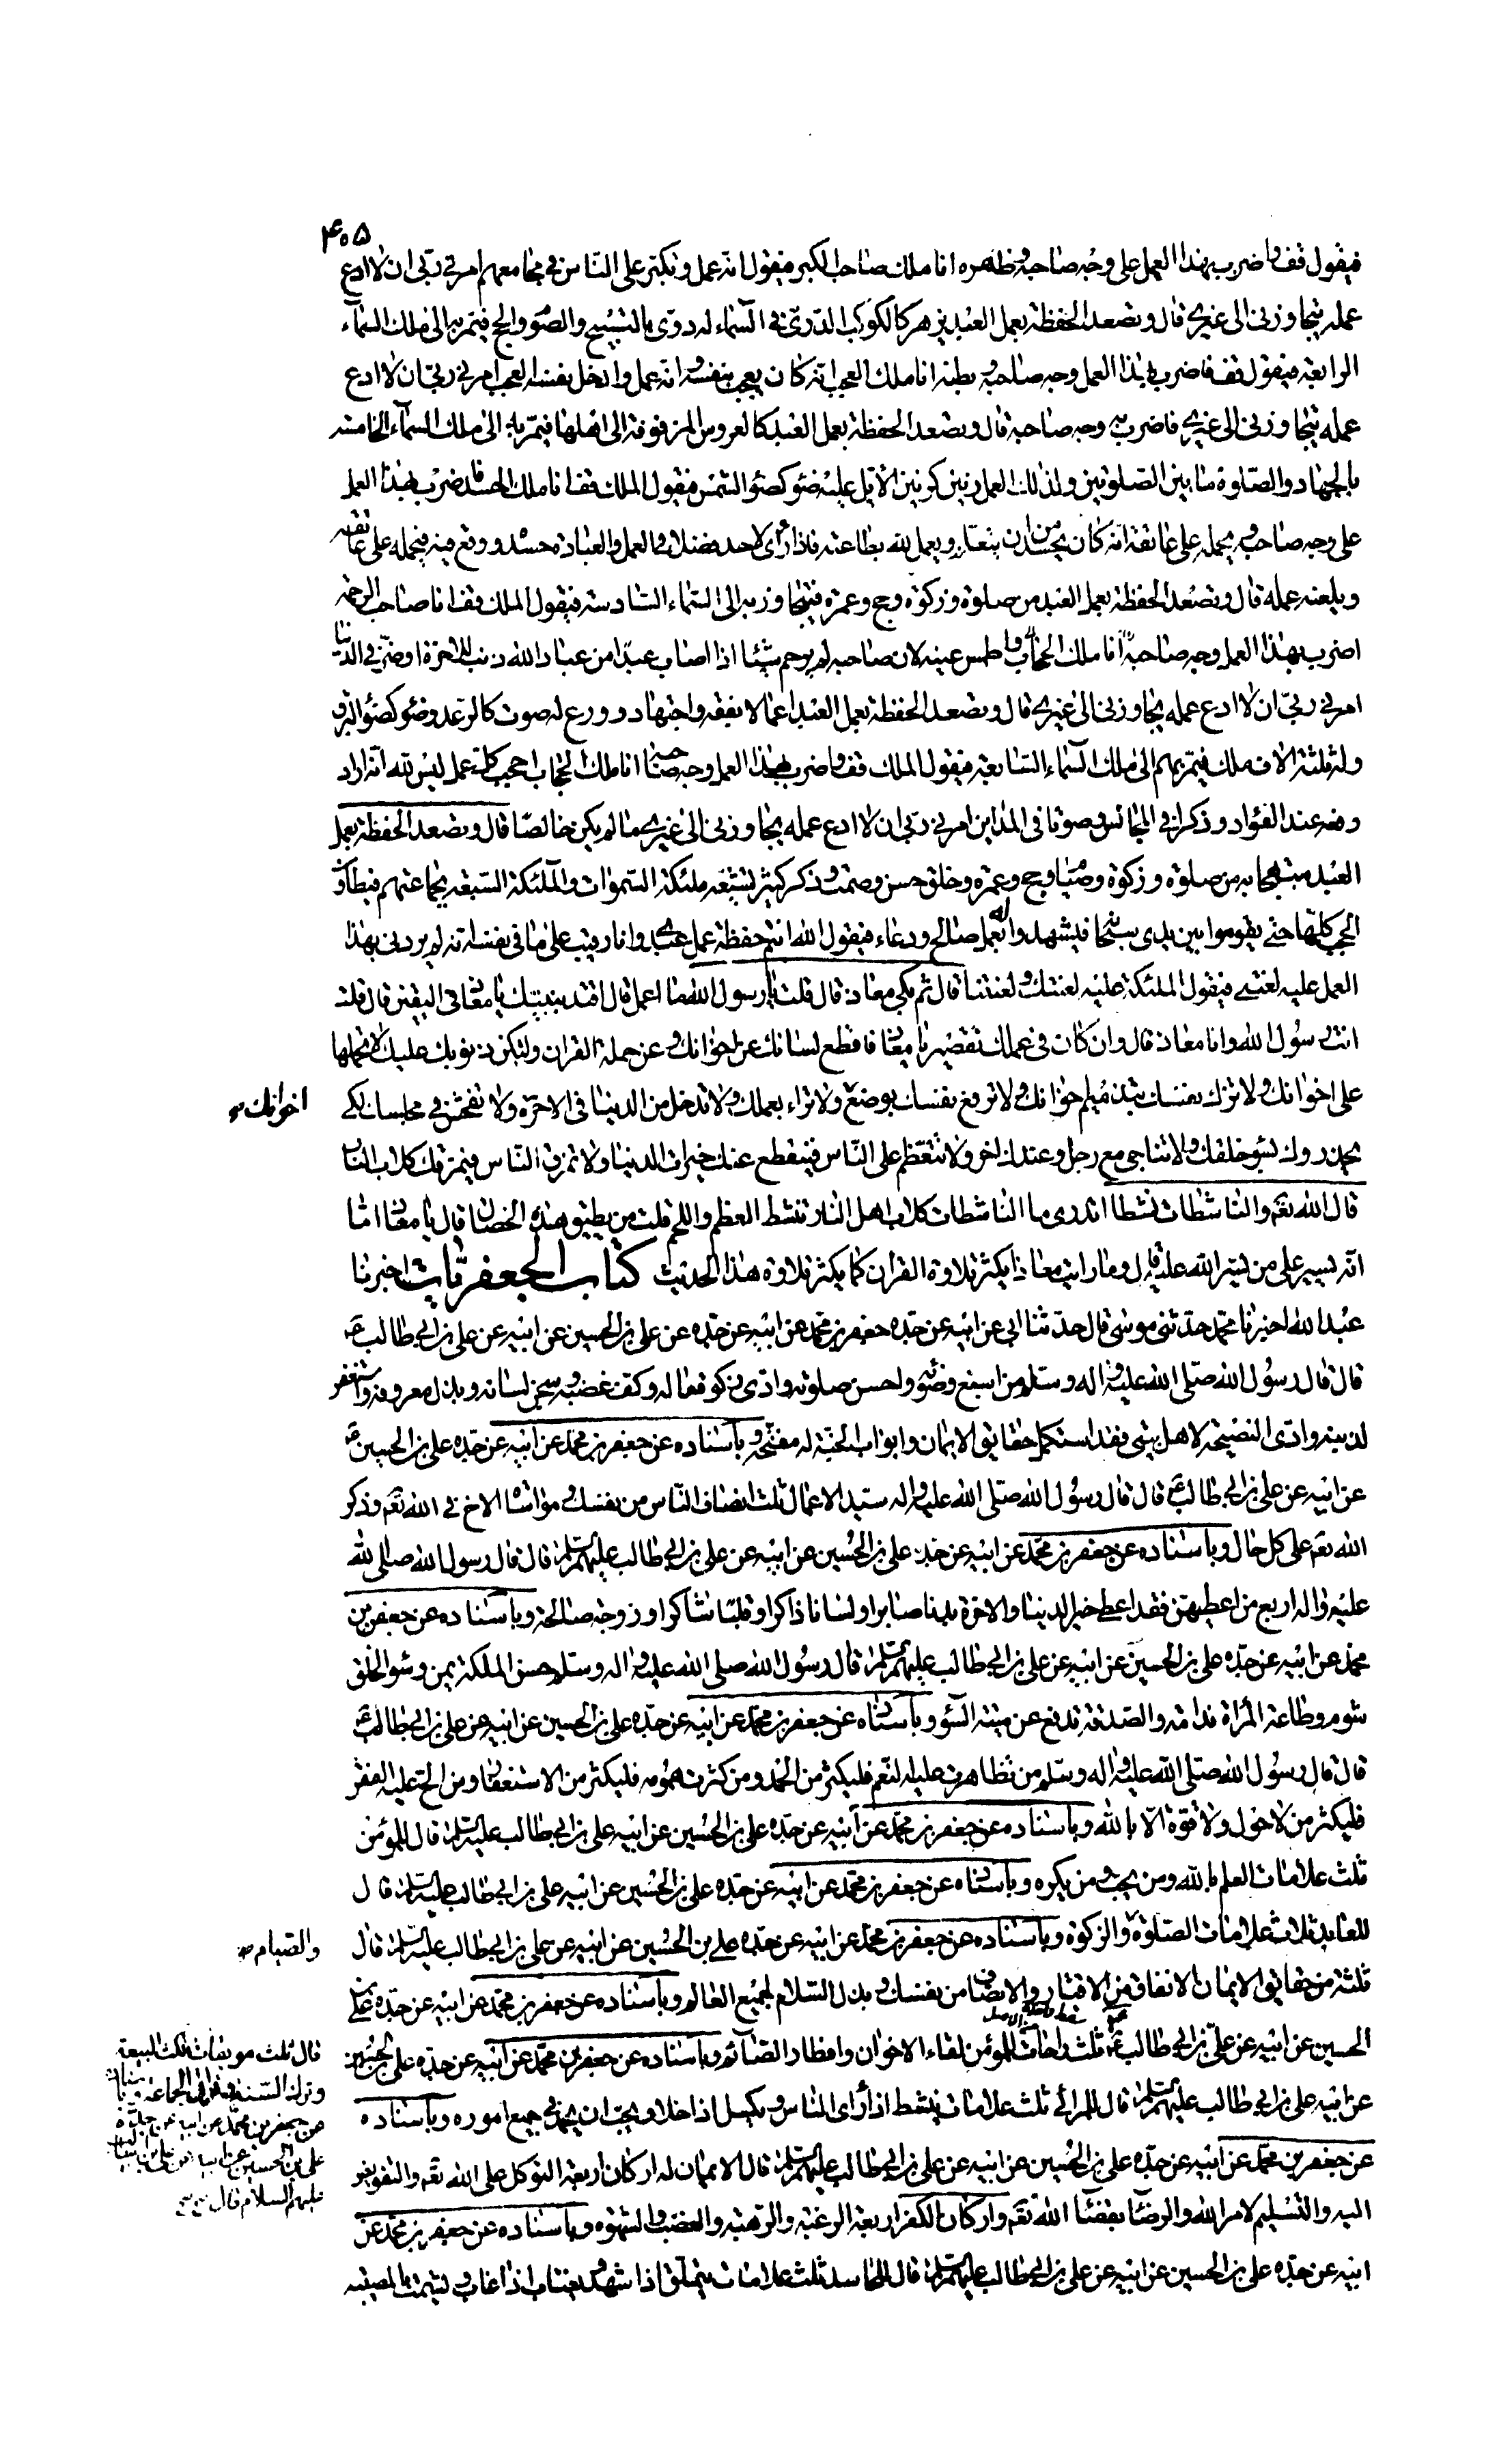 ۴۰۵
فيقول قف واضرب بهذا العمل على وجه صاحبه وظهره انا ملك صاحب الكبر فيقول انه عمل وتكبر على الناس في مجامعهم امرني ربي ان لا ادع
عمله يتجاوزني الى غيري قال وتصعد الحفظة بعمل العبد يزهر كالكوكب الدري في السماء له دوي بالتسبيح والصوم والحج فتمر به الى ملك السماء
الرابعة فيقول قف فاضرب بهذا العمل وجه صاحبه وبطنه انا ملك العجب انه كان يعجب بنفسه وانه عمل وادخل نفسه العجب امرني ربي ان لا ادع
عمله يتجاوزني الى غيري فاضرب به وجه صاحبه قال وتصعد الحفظة بعمل العبد كالعروس المزفوفة الى اهلها فتمر به الى ملك السماء الخامسة
بالجهاد والصلوة ما بين الصلوتين ولذلك العمل رنين كرنين الابل عليه ضوء كضوء الشمس فيقول الملك قف انا ملك الحسد فاضرب بهذا العمل
على وجه صاحبه ويحمله على عاتقه انه كان يحسد من يتعلم ويعمل لله بطاعته فاذا راى لاحد فضلا في العمل والعبادة حسده ووقع فيه فيحمله على عاتقه
ويلعنه عمله قال وتصعد الحفظة بعمل العبد من صلوة وزكوة وحج وعمرة فيتجاوز به الى السماء السادسة فيقول الملك قف انا صاحب الرحمة
اضرب بهذا العمل وجه صاحبه انا ملك الحجاب واطمس عينيه لان صاحبه لم يرحم شيئا اذا اصاب عبدا من عباد الله ذنب للاخرة او ضر في الدنيا
امرني ربي ان لا ادع عمله يجاوزني الى غيري قال وتصعد الحفظة بعمل العبد اعمالا بفقه واجتهاد وورع له صوت كالرعد وضوء كضوء البرق
وله ثلثة الاف ملك فتمر بهم الى ملك السماء السابعة فيقول الملك قف واضرب بهذا العمل وجه صاحبه انا ملك الحجاب احجب كل عمل ليس لله انه اراد
رفعه عند القواد وذكرا في المجالس وصوتا في المداين امرني ربي ان لا ادع عمله يجاوزني الى غيري ما لم يكن خالصا قال وتصعد الحفظة بعمل
العبد مبتهجا به من صلوة وزكوة وصيام وحج وعمرة وخلق حسن وصمت وذكر كثير تشيعه ملئكة السموات والملئكة السبعة بجماعتهم فيطأون
الحجب كلها حتى يقوموا بين يدي سبحانه فيشهدوا له بعمل صالح ودعاء فيقول الله انتم حفظة عمل عبدي وانا رقيب على ما في نفسه انه لم يردني بهذا
العمل عليه لعنتي فيقول الملئكة عليه لعنتك ولعنتنا قال ثم بكى معاذ قال قلت يا رسول الله ما اعمل قال اقتد بنبيك يا معاذ في اليقين قال قلت
انت رسول الله وانا معاذ قال وان كان في عملك تقصير يا معاذ فاقطع لسانك عن اخوانك وعن حملة القران ولتكن ذنوبك عليك لا تحملها
على اخوانك ولا تزك نفسك بتذميم اخوانك ولا ترفع نفسك بوضع ولا تراء بعملك ولا تدخل من الدنيا في الاخرة ولا تفحش في مجلسك لكي
اخوانك
يحذروك لسوء خلقك ولا تناجي مع رجل وعندك اخر ولا تتعظم على الناس فينقطع عنك خيرات الدنيا ولا تمزق الناس فيمزقك كلاب النار
قال الله تعالى والناشطات نشطا اتدري ما الناشطات كلاب اهل النار تنشط العظم واللحم قلت من يطيق هذه الخصال قال يا معاذ اما
انه يسير على من يسر الله عليه قال وما رايت معاذا يكثر تلاوة القران كما يكثر تلاوة هذا الحديث كتاب الجعفريات اخبرنا
عبد الله اخبرنا محمد حدثني موسى قال حدثنا ابي عن ابيه عن جده جعفر بن محمد عن ابيه عن جده عن علي بن الحسين عن ابيه عن علي بن ابي طالب ع
قال قال رسول الله صلى الله عليه واله وسلم من اسبغ وضوئه واحسن صلوته وادى زكوة ماله وكف غضبه وسجن لسانه وبذل معروفه واستغفر
لذنبه وادى النصيحة لاهل بيتي فقد استكمل حقايق الايمان وابواب الجنة له مفتحة وباسناده عن جعفر بن محمد عن ابيه عن جده علي بن الحسين ع
عن ابيه عن علي بن ابي طالب ع قال قال رسول الله صلى الله عليه واله سيد الاعمال ثلث انصاف الناس من نفسك ومؤاساة الاخ في الله تعالى وذكر
الله تعالى على كل حال وباسناده عن جعفر بن محمد عن ابيه عن جده علي بن الحسين عن ابيه عن علي بن ابي طالب عليهم السلام قال قال رسول الله صلى الله
عليه واله اربع من اعطيهن فقد اعطي خير الدنيا والاخرة بدنا صابرا ولسانا ذاكرا وقلبا شاكرا وزوجة صالحة وباسناده عن جعفر بن
محمد عن ابيه عن جده علي بن الحسين عن ابيه عن علي بن ابي طالب عليهم السلام قال رسول الله صلى الله عليه واله وسلم حسن الملكة يمن وسوء الخلق
شوم وطاعة المراة ندامة والصدقة تدفع عن ميتة السوء وباسناده عن جعفر بن محمد عن ابيه عن جده علي بن الحسين عن ابيه عن علي بن ابي طالب ع
قال قال رسول الله صلى الله عليه واله وسلم من تظاهرت عليه النعم فليكثر من الحمد ومن كثرت همومه فليكثر من الاستغفار ومن الح عليه الفقر
فليكثر من لا حول ولا قوة الا بالله وباسناده عن جعفر بن محمد عن ابيه عن جده علي بن الحسين عن ابيه علي بن ابي طالب عليه السلام قال للمؤمن
ثلث علامات العلم بالله ومن يحب ومن يكره وباسناده عن جعفر بن محمد عن ابيه عن جده علي بن الحسين عن ابيه علي بن ابي طالب عليه السلام قال
للعابد ثلاث علامات الصلوة والزكوة وباسناده عن جعفر بن محمد عن ابيه عن جده علي بن الحسين عن ابيه عن علي بن ابي طالب عليه السلام قال
والصيام
ثلثة من حقايق الايمان الانفاق من الاقتار والانصاف من نفسك وبذل السلام لجميع العالم وباسناده عن جعفر بن محمد عن ابيه عن جده علي بن
الحسين عن ابيه عن علي بن ابي طالب ع ثلث راحات للمؤمن لقاء الاخوان وافطار الصائم وباسناده عن جعفر بن محمد عن ابيه عن جده علي بن الحسين
قال ثلث موبقات نكث البيعة
وترك السنة وفراق الجماعة وباسناده
عن جعفر بن محمد عن ابيه عن جده
علي بن الحسين عن ابيه عن علي بن ابي طالب
عليهم السلام قال
عن ابيه علي بن ابي طالب عليهم السلام قال للمرائي ثلث علامات ينشط اذا راى الناس ويكسل اذا خلا ويحب ان يحمد في جميع اموره وباسناده
عن جعفر بن محمد عن ابيه عن جده علي بن الحسين عن ابيه عن علي بن ابي طالب عليهم السلام قال الايمان له اركان اربعة التوكل على الله تعالى والتفويض
اليه والتسليم لامر الله والرضا بقضاء الله تعالى واركان الكفر اربعة الرغبة والرهبة والغضب والشهوة وباسناده عن جعفر بن محمد عن
ابيه عن جده علي بن الحسين عن ابيه عن علي بن ابي طالب عليهم السلام قال للحاسد ثلث علامات يتملق اذا شهد ويغتاب اذا غاب ويشمت بالمصيبة